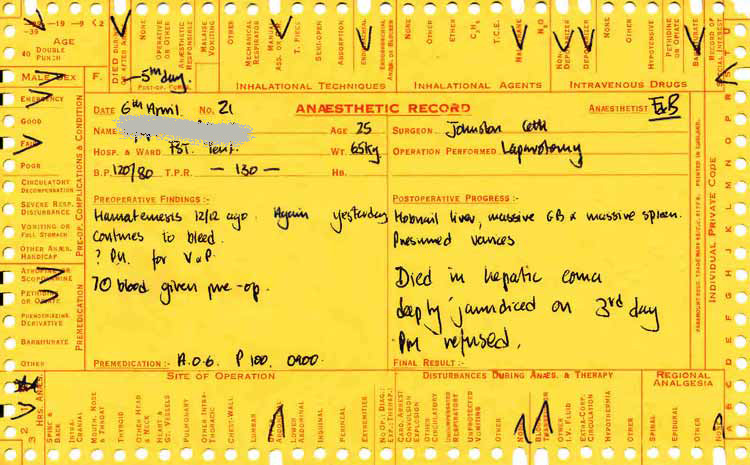 -39 -29 -19 -9 <2
AGE
40 DOUBLE PUNCH
DIED DURING
OR AFTER A
NONE
OPERATIVE OR OTHER
ANÆSTHETIC RESPONSIBLE
MALAISE VOMITING
OTHER
MECHANICAL RESPIRATOR
MANUAL ASS. OR
T. PIECE
SEMI-OPEN
ABSORPTION
ENDOTRACHEAL
ENDOBRONCHIAL
ANÆS. OR BLOCKER
NONE
OTHER
ETHER
C₃H₆
T.C.E.
HALOTHANE
N₂O
NON-DEPOLARIZER
DEPOLARIZER
OTHER
HYPOTENSIVE
PETHIDINE OR OPIATE
BARBITURATE
RECORD OF SPECIAL INTEREST
MALE SEX F.
5th day.
POST-OP. COMPS.
INHALATIONAL TECHNIQUES
INHALATIONAL AGENTS
INTRAVENOUS DRUGS
DATE 6th April No. 21
ANÆSTHETIC RECORD
ANÆSTHETIST EGB
NAME
AGE 25
SURGEON Johnston
HOSP. & WARD
WT. 65Kg.
OPERATION PERFORMED Laparotomy
B.P. 120/80 T.P.R. - 130 - HB.
PREOPERATIVE FINDINGS :-
Haematemesis 12/12 ago. Again yesterday
Continues to bleed.
? PU. for V & P.
70 blood given pre-op.
PREMEDICATION :- A.0.6. P 100. 0900.
POSTOPERATIVE PROGRESS :-
Hobnail liver, massive GB & massive spleen.
Presumed varices
Died in hepatic coma
deeply jaundiced on 3rd day
PM refused.
FINAL RESULT :-
EMERGENCY
GOOD
FAIR
POOR
CIRCULATORY DECOMPENSATION
SEVERE RESP. DISTURBANCE
VOMITING OR FULL STOMACH
OTHER ANÆS. HANDICAP
PRE-OP. COMPLICATIONS & CONDITION
ATROPINE OR SCOPOLAMINE
PETHIDINE OR OPIATE
PHENOTHIAZINE DERIVATIVE
BARBITURATE
OTHER
PREMEDICATION
PRINTED IN ENGLAND.
PARAMOUNT REGD. TRADE MARK
INDIVIDUAL PRIVATE CODE
A B C D E F G H J K L M N O P
3 2 HRS. ANÆS.
SITE OF OPERATION
SPINE & BACK
INTRA-CRANIAL
MOUTH, NOSE & THROAT
THYROID
OTHER HEAD & NECK
HEART & GT. VESSELS
PULMONARY
OTHER INTRA-THORACIC
CHEST-WALL
LUMBAR
UPPER ABDOMINAL
LOWER ABDOMINAL
INGUINAL
PERINEAL
EXTREMITIES
NO OP.: DIAG.: EXP.: THERAP.
DISTURBANCES DURING ANÆS. & THERAPY
CARD. ARREST CONVULSION EXPLOSION
OTHER CIRCULATORY
UNANTICIPATED RESPIRATORY
UNPROTECTED VOMITING
OTHER
NONE
BLOOD
OTHER I.V. FLUID
EXTRA-CORP. CIRCULATION
HYPOTHERMIA
OTHER
REGIONAL ANALGESIA
SPINAL
EPIDURAL
OTHER
NONE